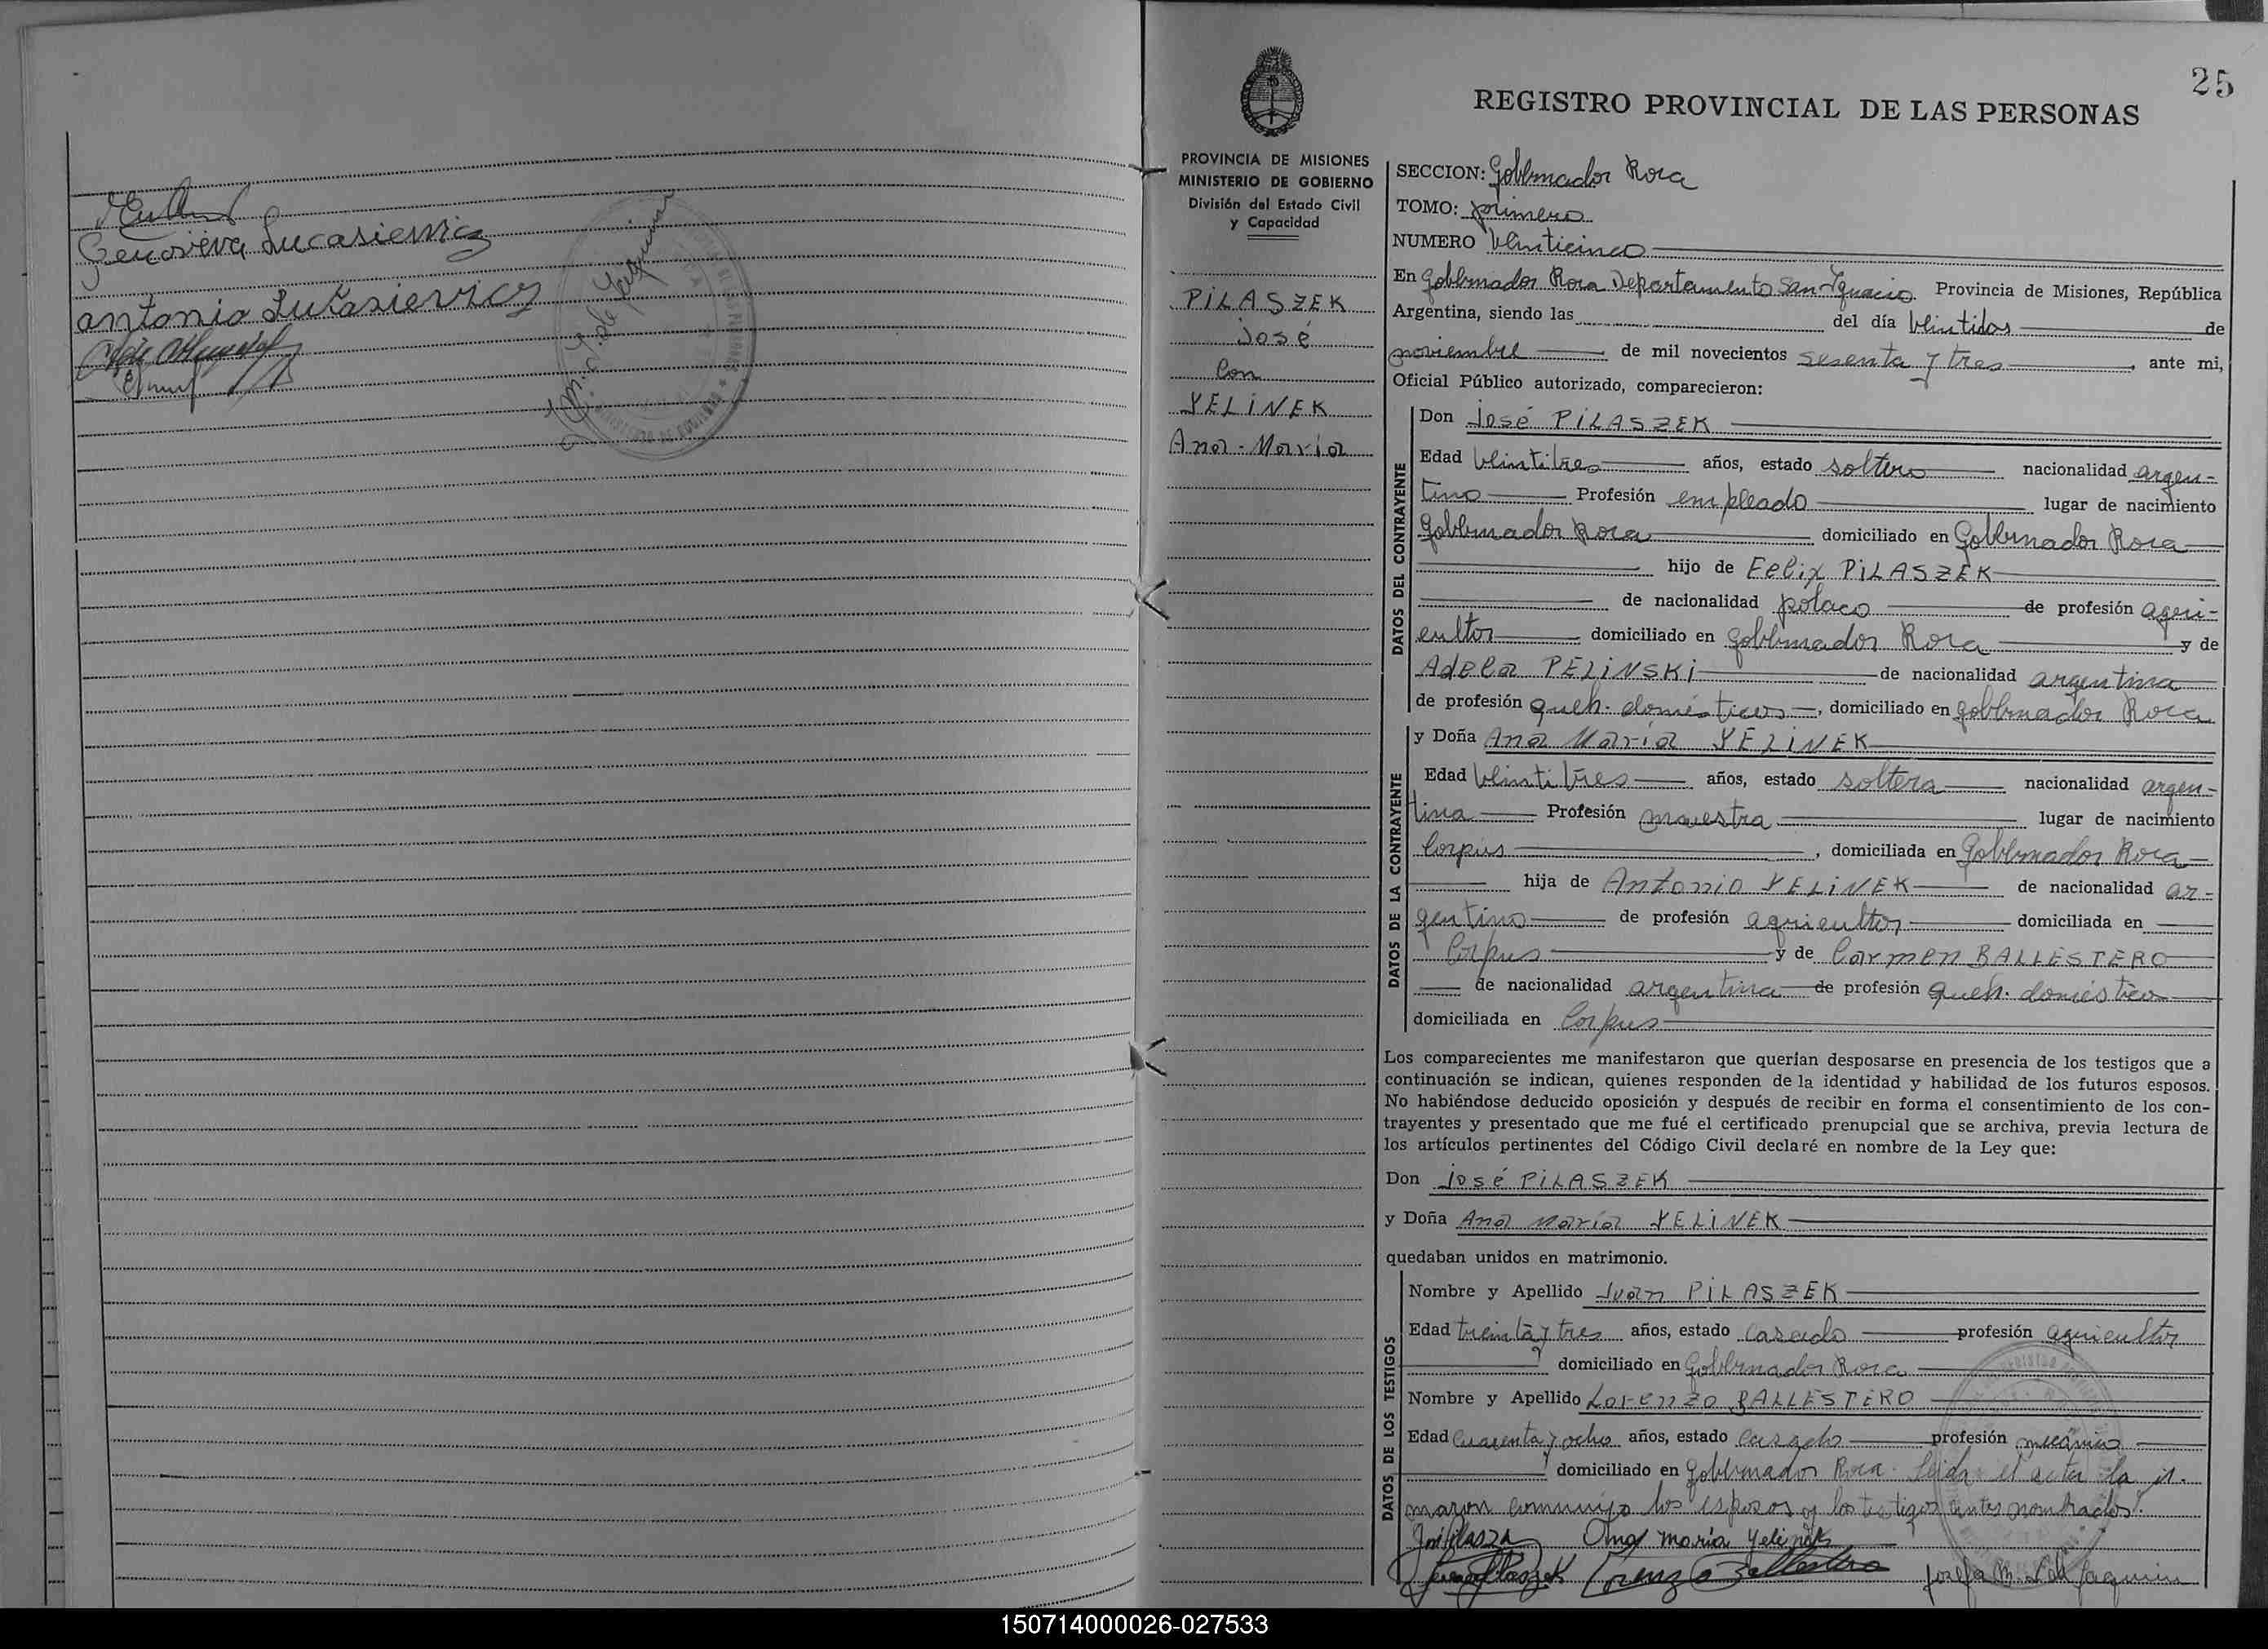 Genoveva Lucasiewicz
antonio Lukasievicz
25
REGISTRO PROVINCIAL DE LAS PERSONAS
PROVINCIA DE MISIONES
MINISTERIO DE GOBIERNO
División del Estado Civil
y Capacidad
PILASZEK
José
Con
YELINEK
Ana-María
SECCION: Gobernador Roca
TOMO: primero
NUMERO Veinticinco
En Gobernador Roca Departamento San Ignacio. Provincia de Misiones, República
Argentina, siendo las del día veintidos de
noviembre de mil novecientos sesenta y tres, ante mi,
Oficial Público autorizado, comparecieron:
DATOS DEL CONTRAYENTE
Don José PILASZEK
Edad veintitres años, estado soltero nacionalidad argen-
tino Profesión empleado lugar de nacimiento
Gobernador Roca domiciliado en Gobernador Roca
hijo de Felix PILASZEK
de nacionalidad polaco de profesión agri-
cultor domiciliado en Gobernador Roca y de
Adela PELINSKI de nacionalidad argentina
de profesión queh. domésticos, domiciliado en Gobernador Roca
DATOS DE LA CONTRAYENTE
y Doña Ana María YELINEK
Edad veintitres años, estado soltera nacionalidad argen-
tina Profesión maestra lugar de nacimiento
Corpus, domiciliada en Gobernador Roca
hija de Antonio YELINEK de nacionalidad ar-
gentino de profesión agricultor domiciliada en
Corpus y de Carmen BALLESTERO
de nacionalidad argentina de profesión queh. doméstico
domiciliada en Corpus
Los comparecientes me manifestaron que querían desposarse en presencia de los testigos que a
continuación se indican, quienes responden de la identidad y habilidad de los futuros esposos.
No habiéndose deducido oposición y después de recibir en forma el consentimiento de los con-
trayentes y presentado que me fué el certificado prenupcial que se archiva, previa lectura de
los artículos pertinentes del Código Civil declaré en nombre de la Ley que:
Don José PILASZEK
y Doña Ana María YELINEK
quedaban unidos en matrimonio.
DATOS DE LOS TESTIGOS
Nombre y Apellido Juan PILASZEK
Edad treinta y tres años, estado casado profesión agricultor
domiciliado en Gobernador Roca
Nombre y Apellido Lorenzo BALLESTERO
Edad cuarenta y ocho años, estado casado profesión mecánico
domiciliado en Gobernador Roca. Leida el acta la fir-
maron conmigo los esposos y los testigos antes nombrados.
Ana María Yelinek
Lorenzo Ballestero
150714000026-027533